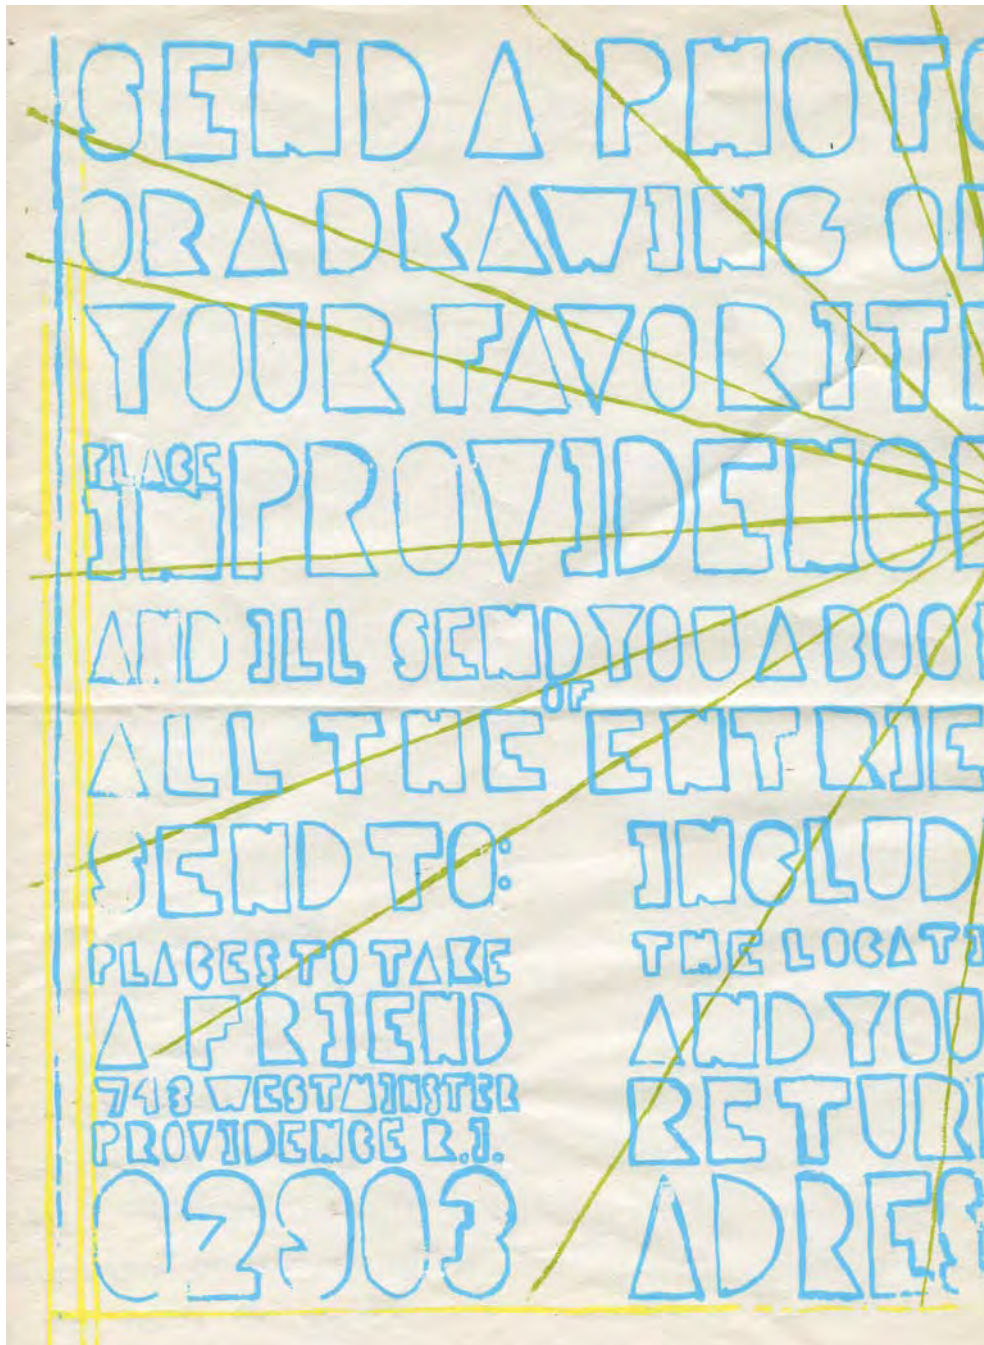 SEND A PHOTO
OR A DRAWING OF
YOUR FAVORITE
PLACE
IN PROVIDENCE
AND ILL SEND YOU A BOOK
OF
ALL THE ENTRIE
SEND TO:
PLACES TO TAKE
A FRIEND
743 WESTMINSTER
PROVIDENCE R.I.
02903
INCLUD
THE LOCATI
AND YOU
RETUR
ADRES